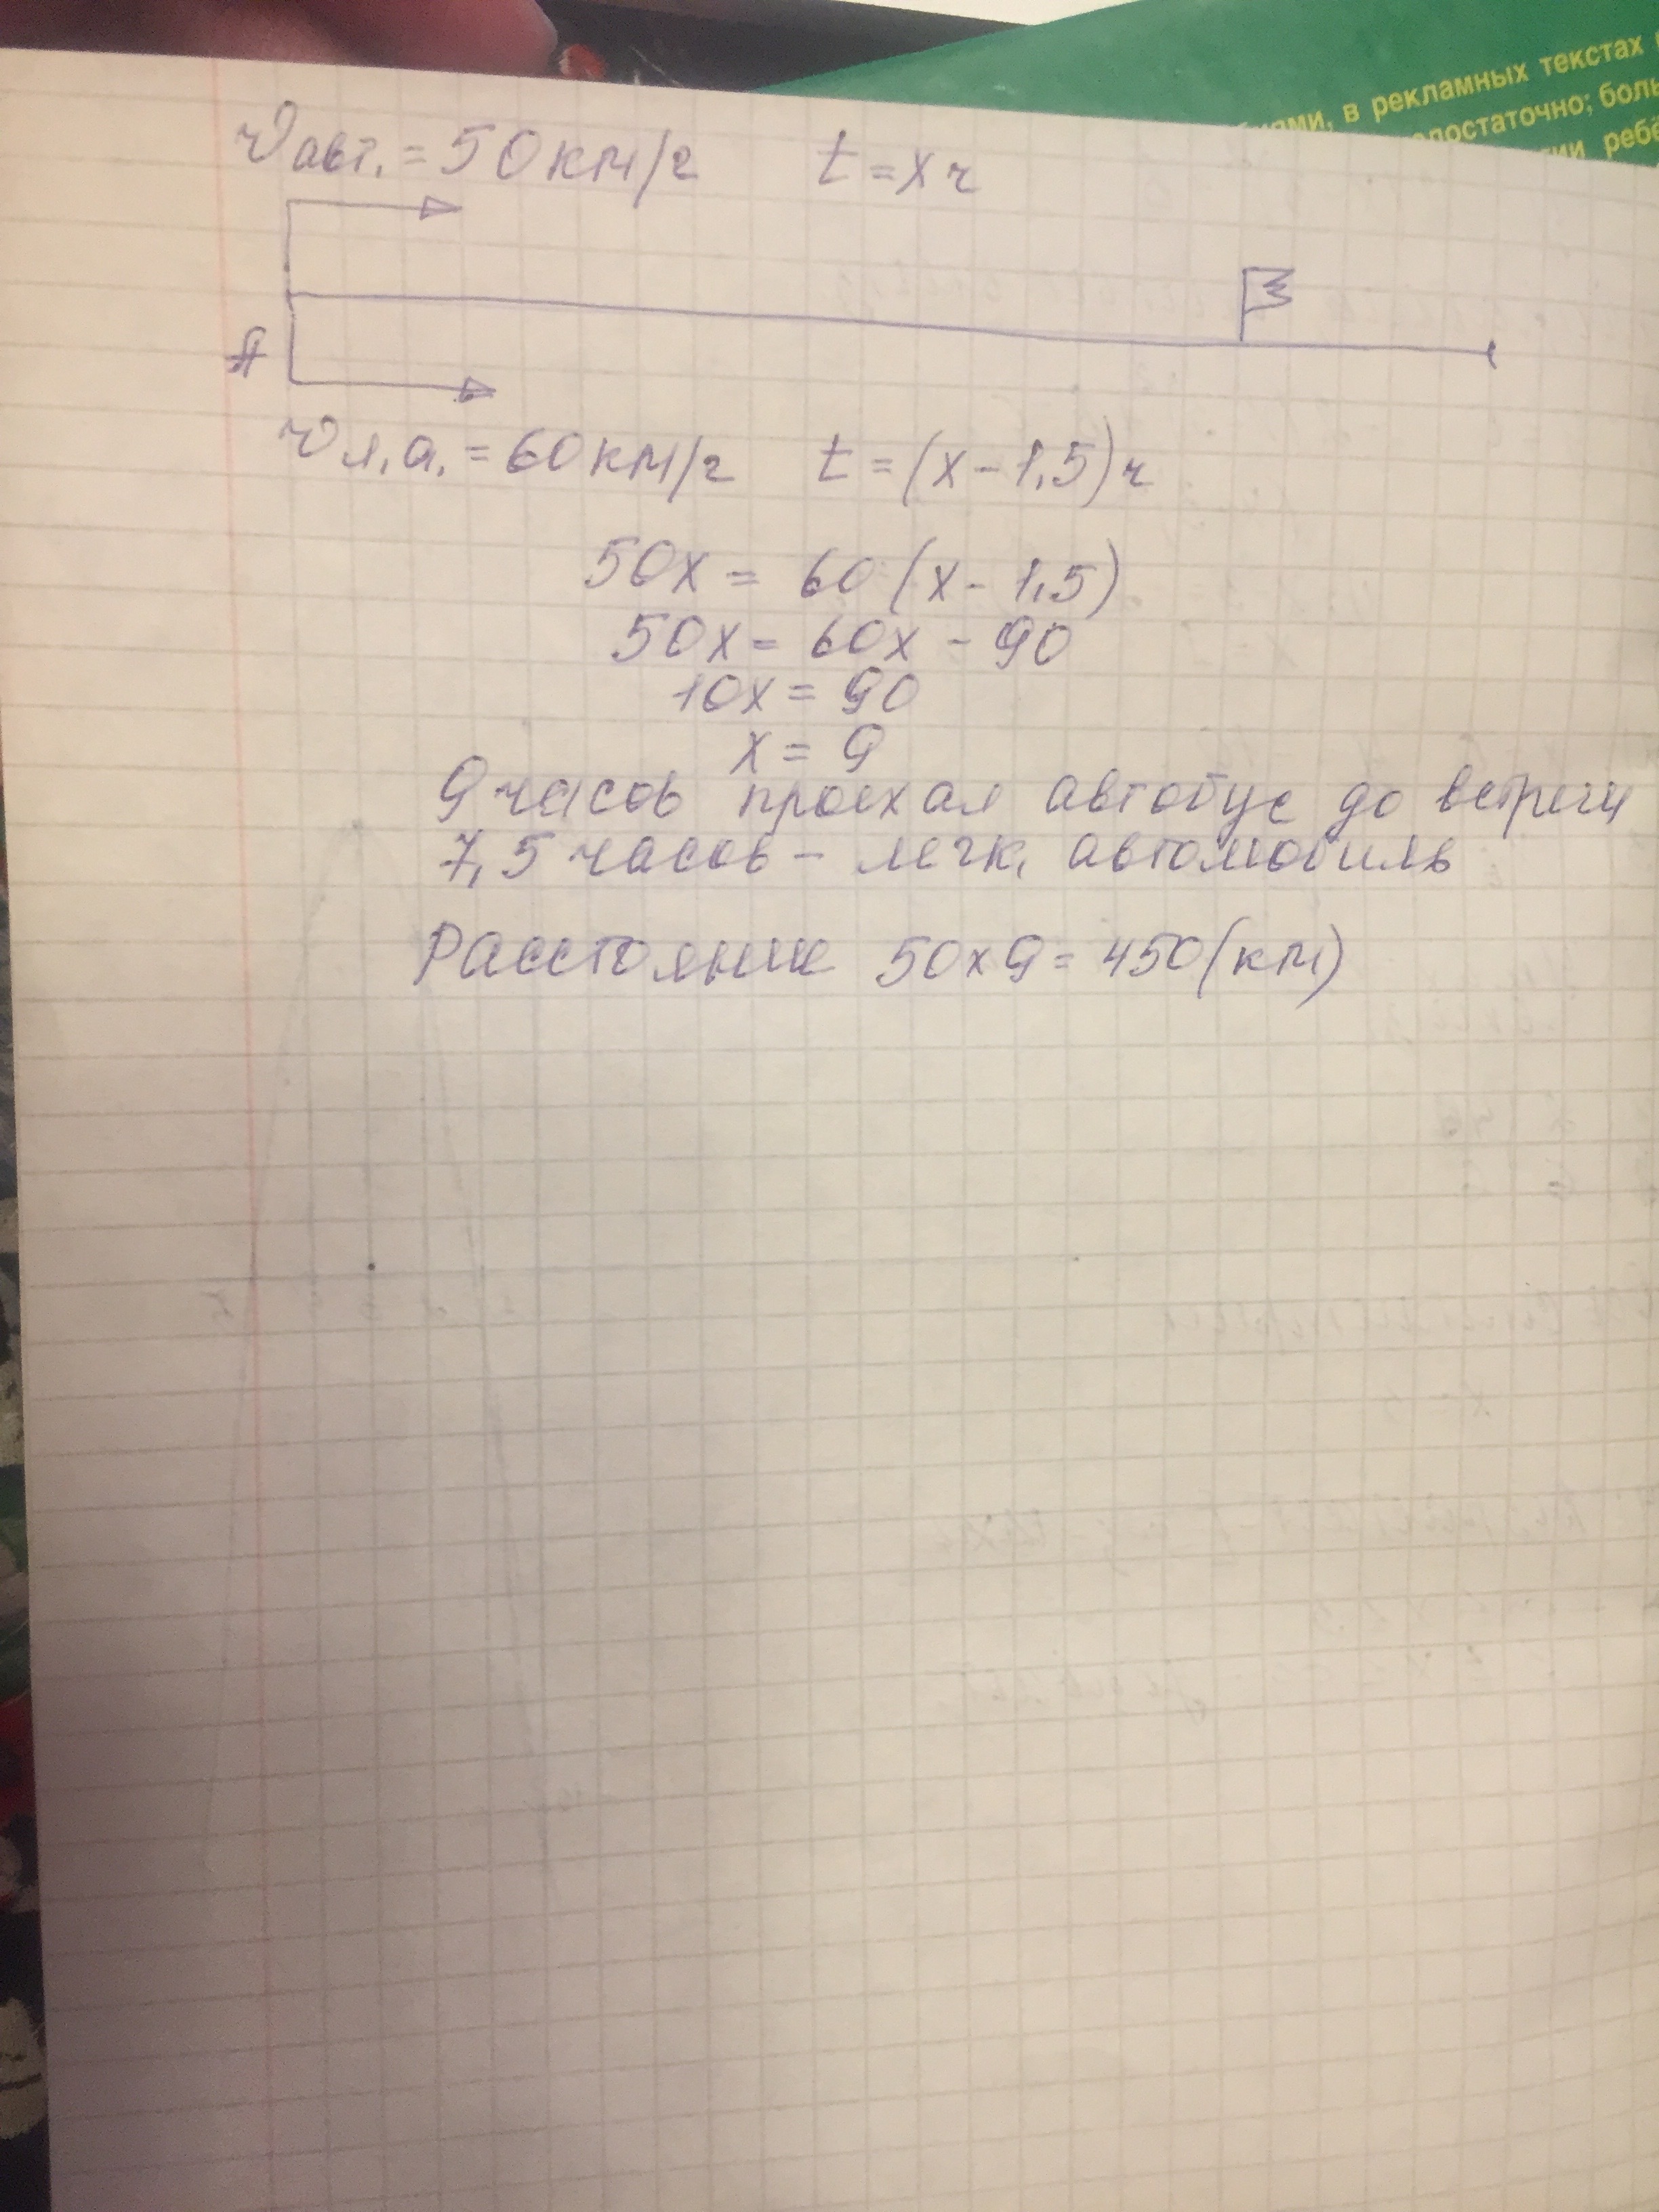 в рекламных текстах
достаточно; боль
ребё
vавт. = 50 км/г t = x ч
A
vл.а. = 60 км/г t = (x - 1,5) ч
50x = 60 (x - 1,5)
50x = 60x - 90
10x = 90
x = 9
9 часов проехал автобус до встречи
7,5 часов - легк. автомобиль
Расстояние 50x9 = 450 (км)